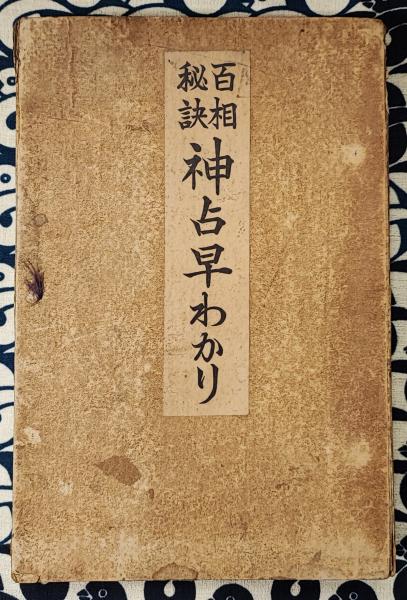 百相
秘訣
神占早わかり